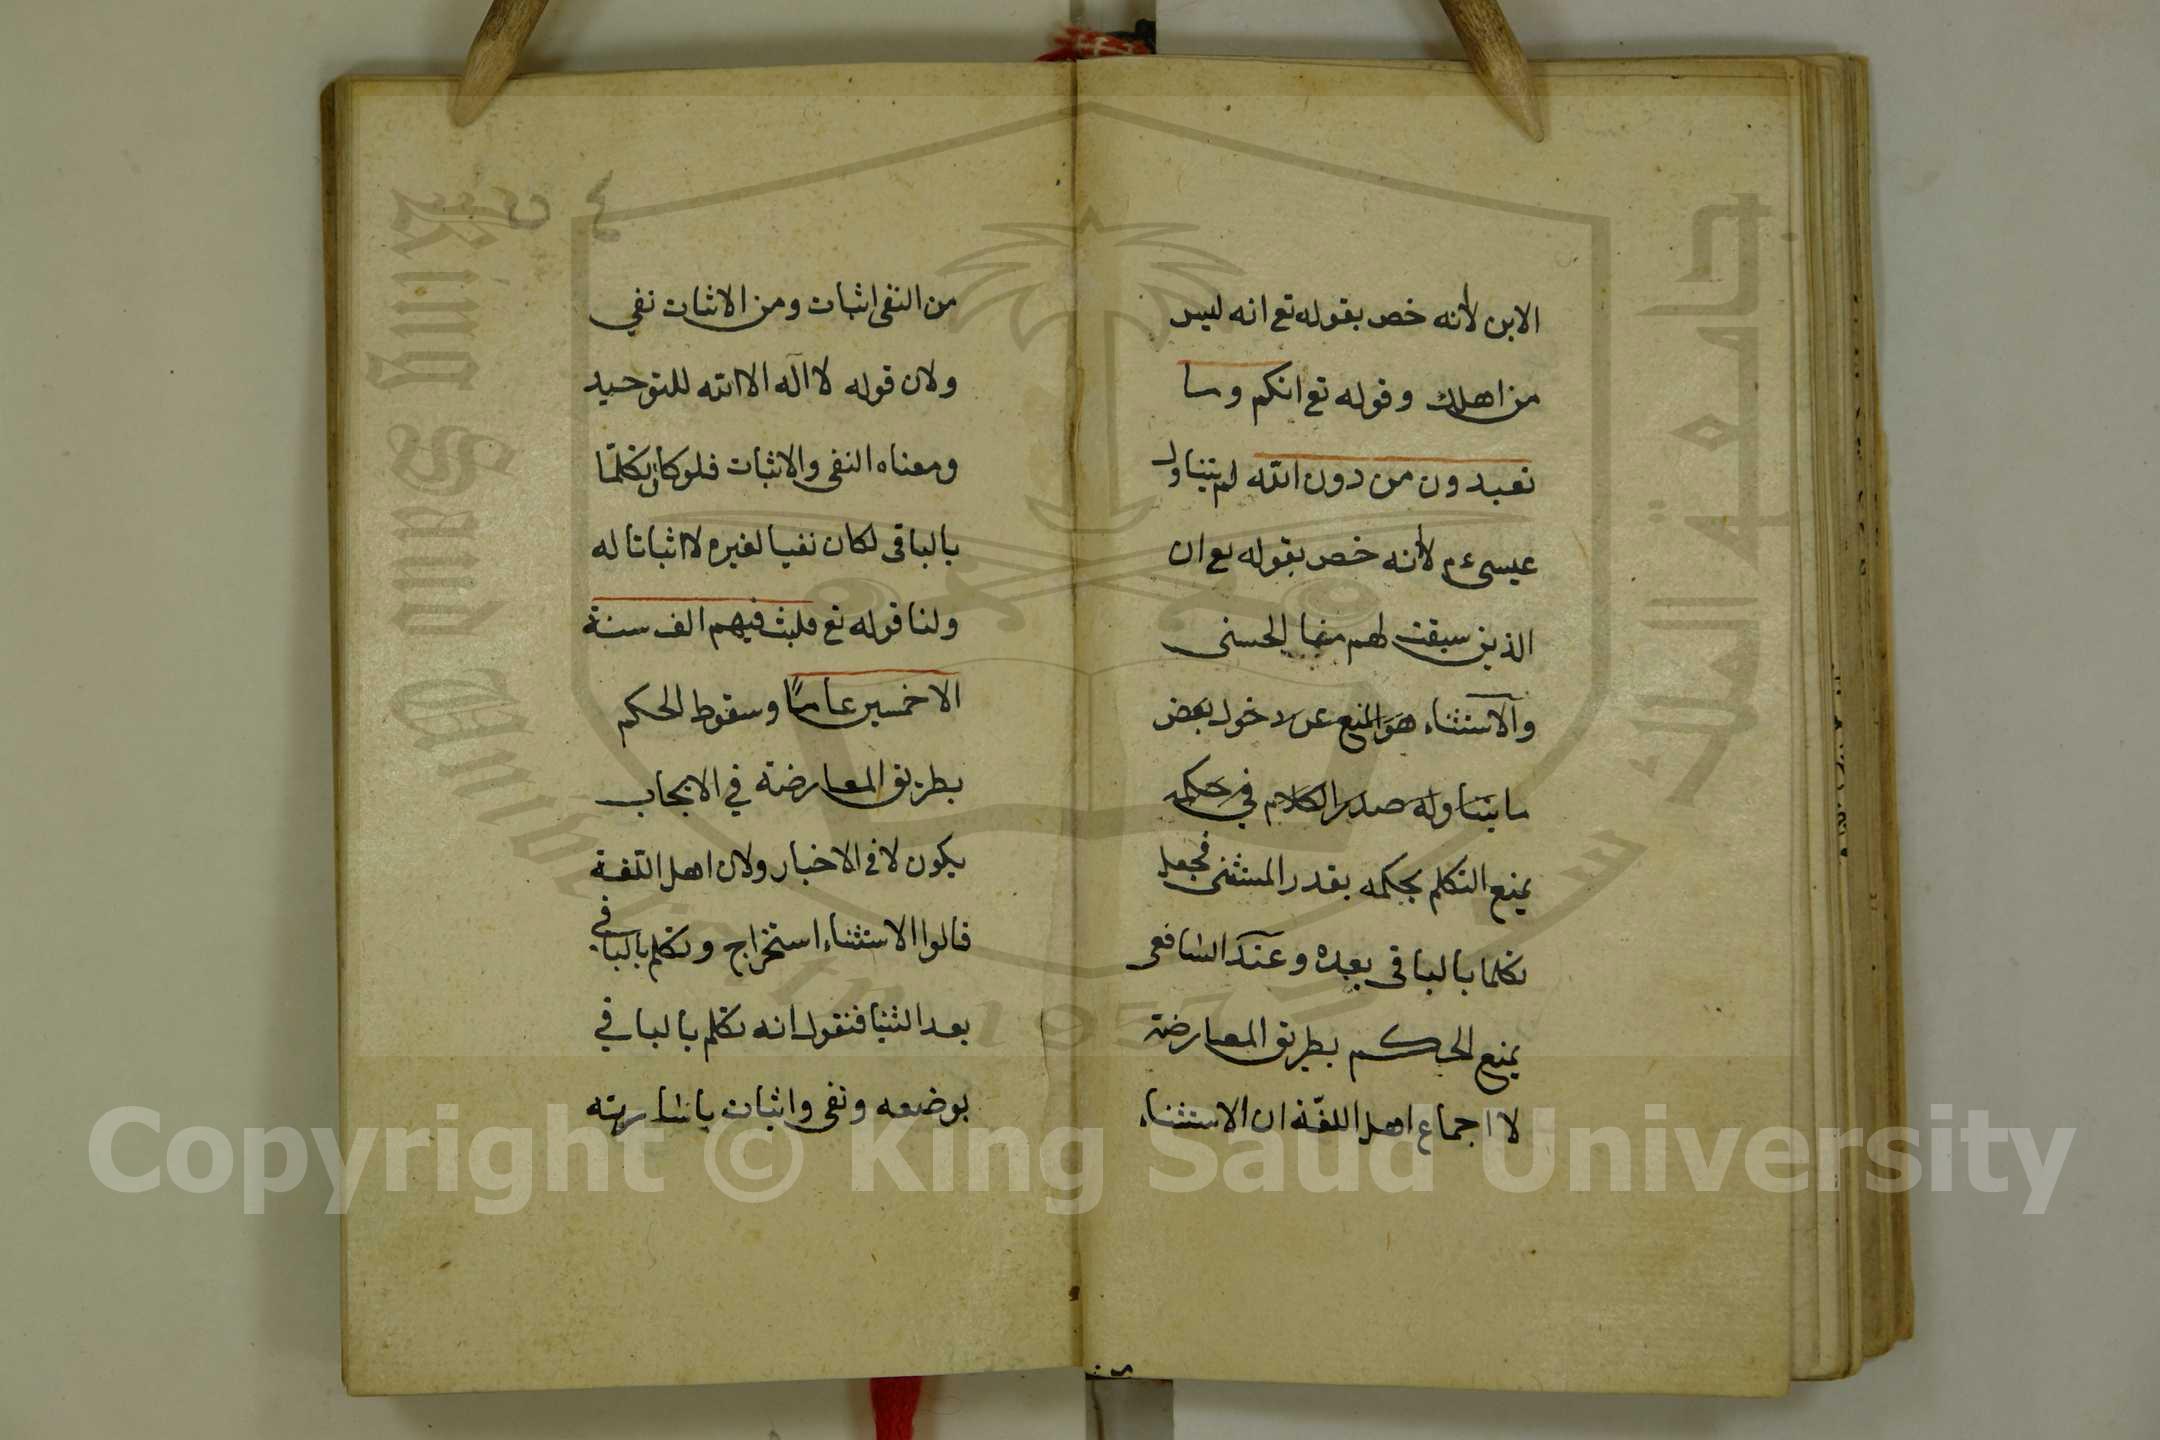 الابن لأنه خص بقوله تع انه ليس
من اهلك وقوله تع انكم وما
تعبدون من دون الله لم يتناول
عيسى ءم لأنه خص بقوله تع ان
الذين سبقت لهم منا الحسنى
والاستثناء هو المنع عن دخول بعض
ما يتناوله صدر الكلام في حكمه
يمنع التكلم بحكمه بقدر المستثنى فجعل
تكلما بالباقى بعده وعند الشافعى
يمنع الحكم بطريق المعارضة
لا اجماع اهل اللغة ان الاستثناء
من النفى اثبات ومن الاثبات نفي
ولان قوله لا اله الا الله للتوحيد
ومعناه النفى والاثبات فلو كان تكلمًا
بالباقى لكان نفيا لغيره لا اثباتا له
ولنا قوله تع فلبث فيهم الف سنة
الا خمسين عامًا وسقوط الحكم
بطريق المعارضة في الايجاب
يكون لا فى الاخبار ولان اهل اللغة
قالوا الاستثناء استخراج وتكلم بالباقي
بعد الثنيا فنقول انه تكلم بالباقي
بوضعه ونفى واثبات باشارته
King Saud University 1957
جامعة الملك سعود
Copyright © King Saud University